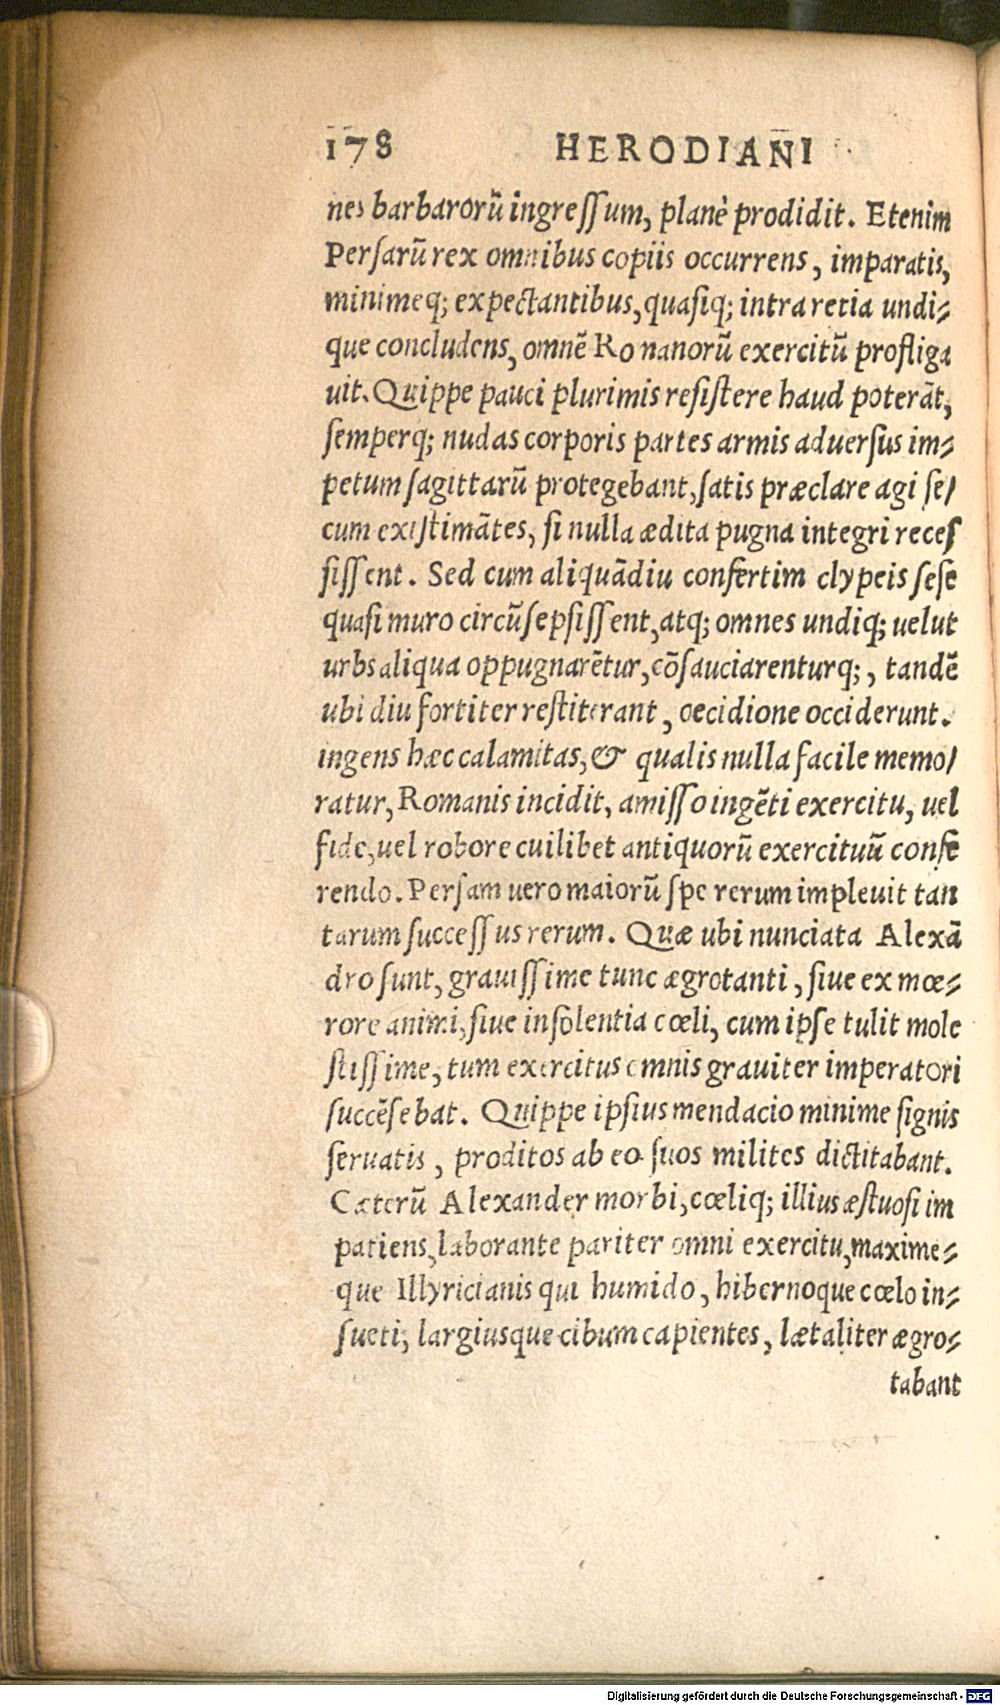 178 HERODIANI
nes barbarorũ ingreſſum, planè prodidit. Etenim
Perſarũ rex omnibus copiis occurrens, imparatis,
minimeq; expectantibus, quaſiq; intra retia undi-
que concludens, omnẽ Romanorũ exercitũ profliga
uit. Quippe pauci plurimis reſiſtere haud poterãt,
ſemperq; nudas corporis partes armis aduerſus im-
petum ſagittarũ protegebant, ſatis præclare agi ſe/
cum exiſtimãtes, ſi nulla ædita pugna integri receſ
ſiſſent. Sed cum aliquãdiu confertim clypeis ſeſe
quaſi muro circũſepſiſſent, atq; omnes undiq; uelut
urbs aliqua oppugnarẽtur, cõſauciarenturq;, tandẽ
ubi diu fortiter reſtiterant, oecidione occiderunt.
ingens hæc calamitas, & qualis nulla facile memo/
ratur, Romanis incidit, amiſſo ingẽti exercitu, uel
fide, uel robore cuilibet antiquorũ exercituũ confe
rendo. Perſam uero maiorũ ſpe rerum impleuit tan
tarum ſucceſſus rerum. Quæ ubi nunciata Alexã
dro ſunt, grauiſſime tunc ægrotanti, ſiue ex mœ-
rore animi, ſiue inſolentia cœli, cum ipſe tulit mole
ſtiſſime, tum exercitus omnis grauiter imperatori
ſuccẽſebat. Quippe ipſius mendacio minime ſignis
ſeruatis, proditos ab eo ſuos milites dictitabant.
Cæterũ Alexander morbi, cœliq; illius æſtuoſi im
patiens, laborante pariter omni exercitu, maxime-
que Illyricianis qui humido, hibernoque cœlo in-
ſueti, largiusque cibum capientes, lætaliter ægro-
tabant
Digitalisierung gefördert durch die Deutsche Forschungsgemeinschaft - DFG